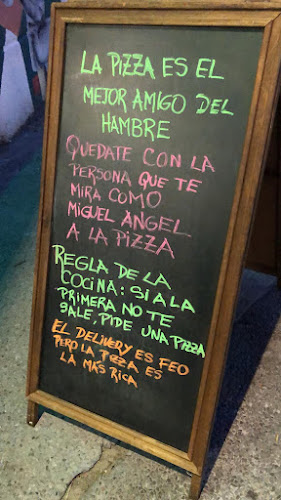 LA PIZZA ES EL
MEJOR AMIGO DEL
HAMBRE
QUEDATE CON LA
PERSONA QUE TE
MIRA COMO
MIGUEL ANGEL
A LA PIZZA
REGLA DE LA
COCINA: SI A LA
PRIMERA NO TE
SALE, PIDE UNA PIZZA
EL DELIVERY ES FEO
PERO LA PIZZA ES
LA MÁS RICA